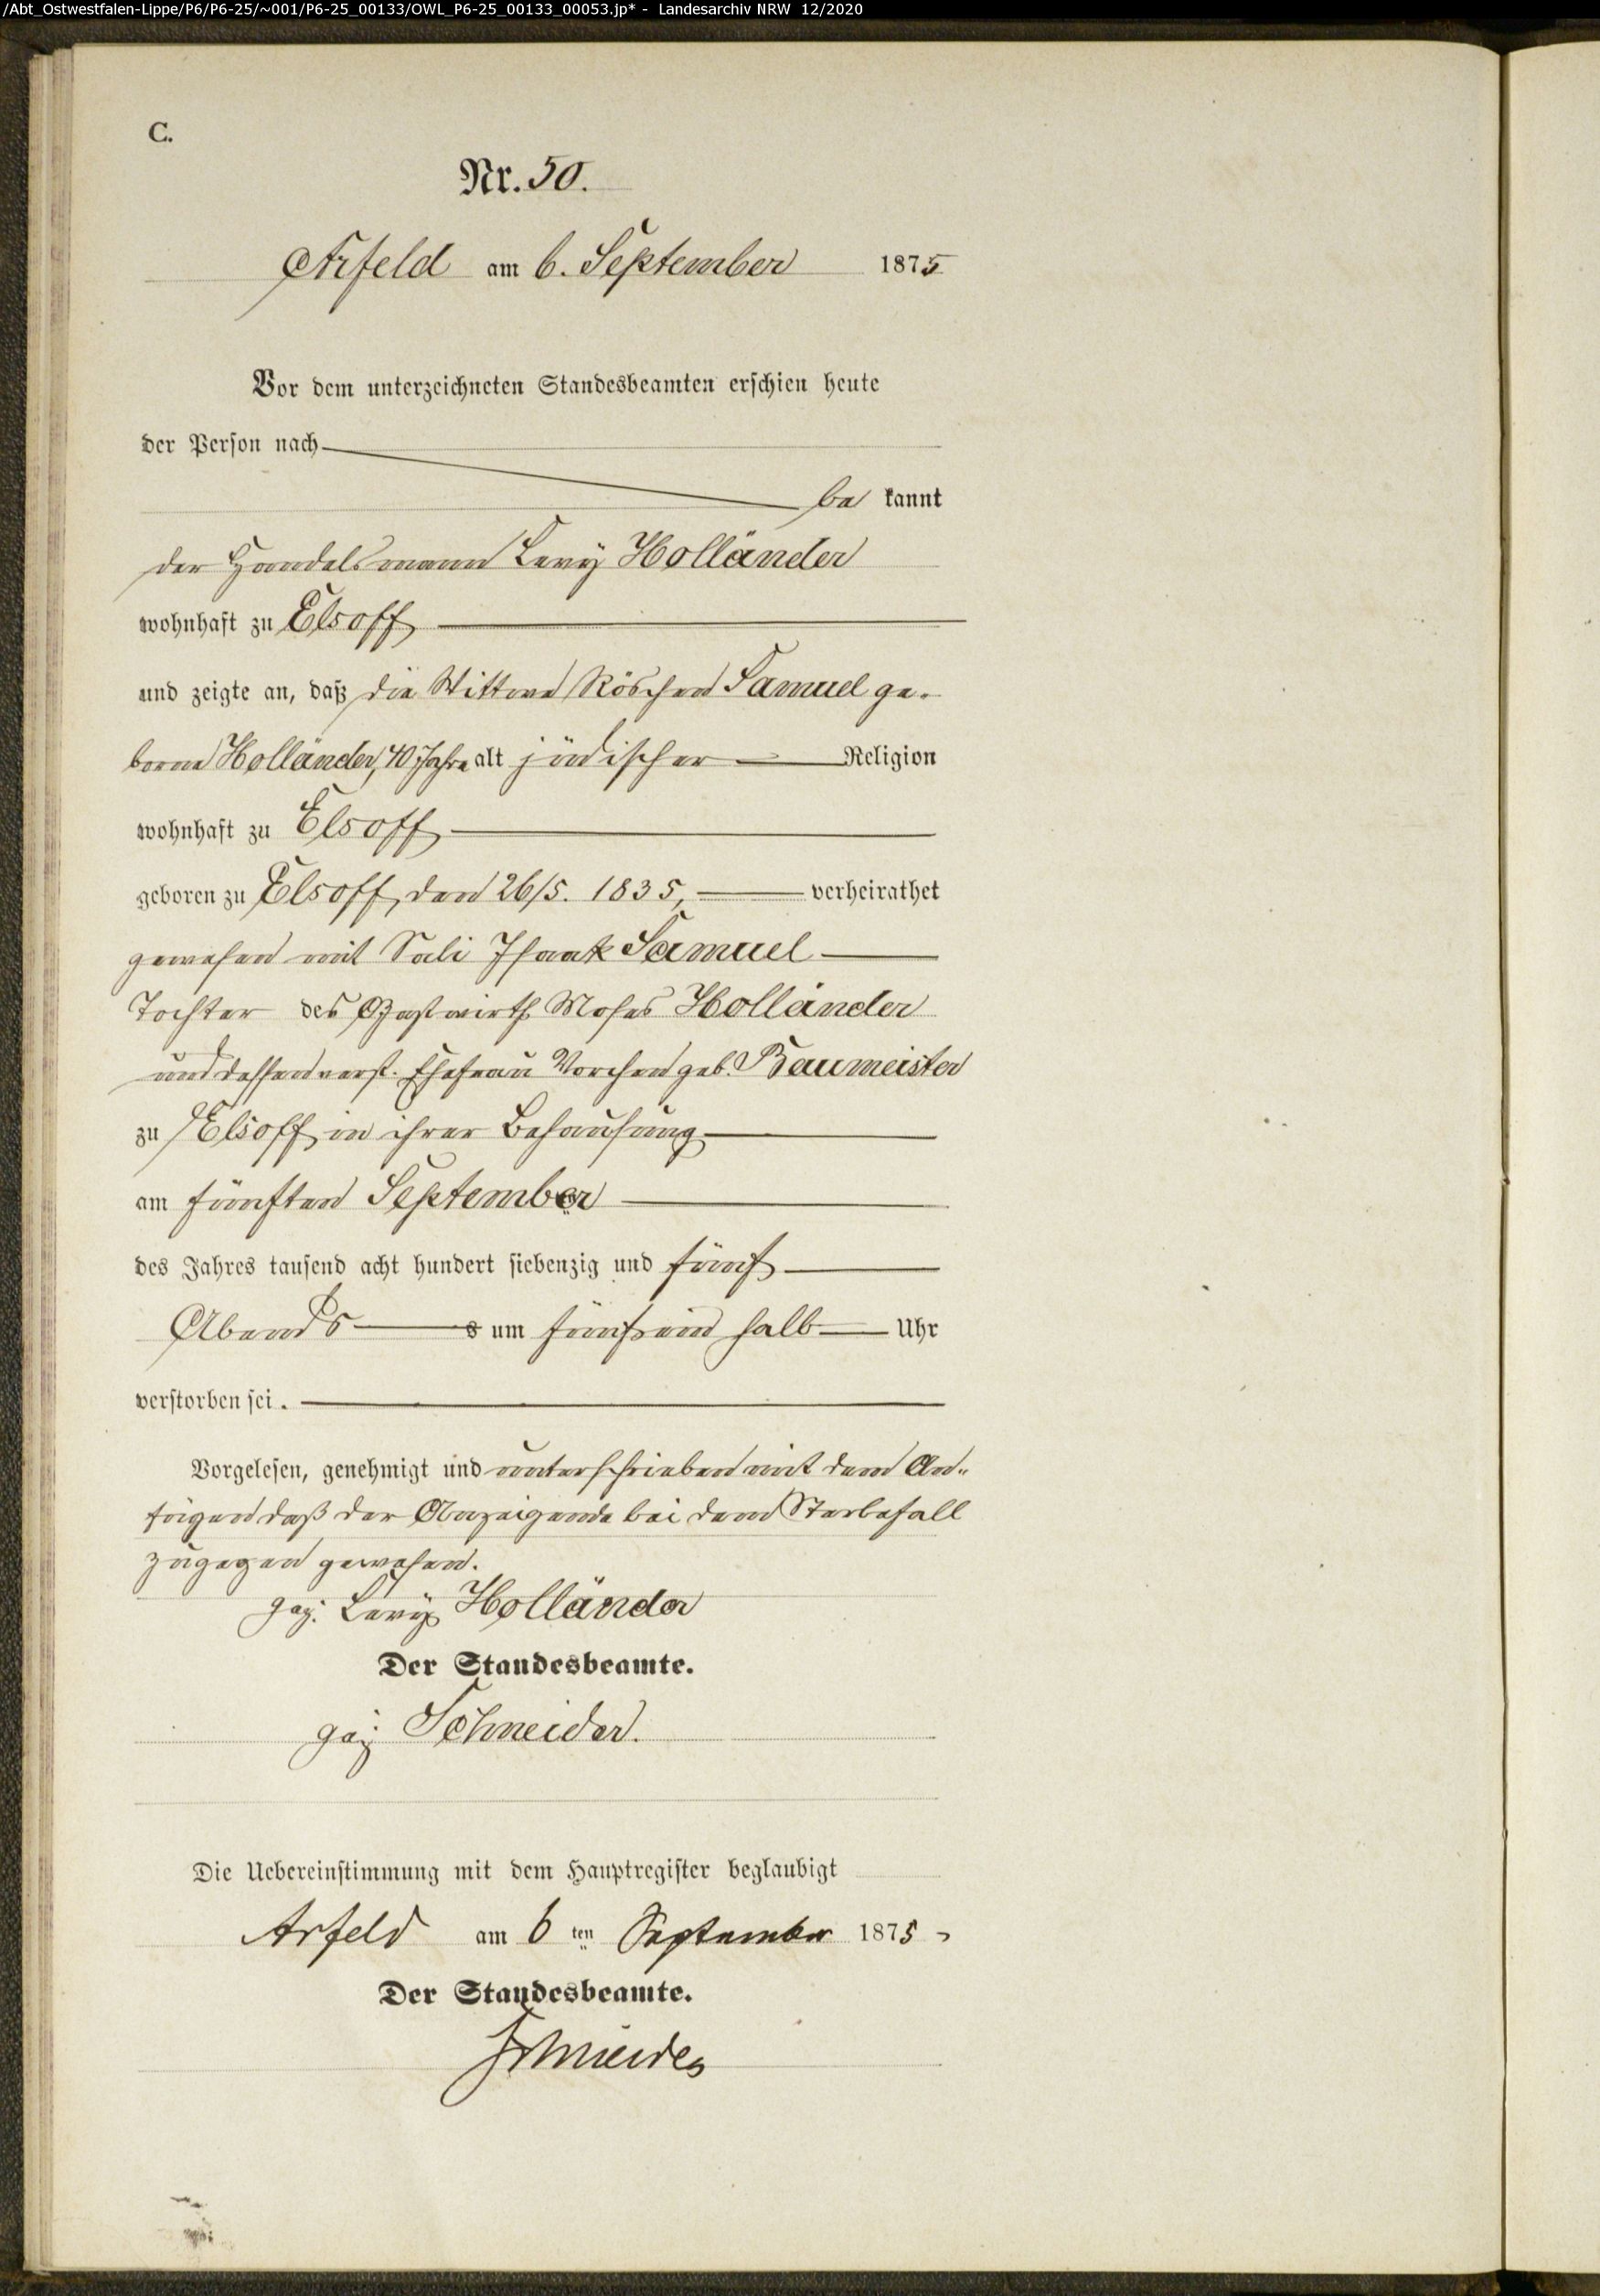 /Abt_Ostwestfalen-Lippe/P6/P6-25/~001/P6-25_00133/OWL_P6-25_00133_00053.jp* - Landesarchiv NRW 12/2020
C.
Nr. 50.
Arfeld am 6. September 1875
Vor dem unterzeichneten Standesbeamten erschien heute
der Person nach
be kannt
der Handelsmann Levy Holländer
wohnhaft zu Elsoff
und zeigte an, daß die Wittwe Röschen Samuel ge-
borne Holländer, 40 Jahre alt jüdischer Religion
wohnhaft zu Elsoff
geboren zu Elsoff, den 26/5. 1835, verheirathet
gewesen mit Sali Isaak Samuel
Tochter des Gastwirth Moses Holländer
und dessen verst. Ehefrau Vorchen geb. Baumeister
zu Elsoff in ihrer Behausung
am fünften September
des Jahres tausend acht hundert siebenzig und fünf
Abends s um fünf ein halb Uhr
verstorben sei.
Vorgelesen, genehmigt und unterschrieben mit dem An-
fügen daß der Anzeigende bei dem Sterbefall
zugegen gewesen.
gez. Levy Holländer
Der Standesbeamte.
gez. Schneider.
Die Uebereinstimmung mit dem Hauptregister beglaubigt
Arfeld am 6 ten September 1875
Der Standesbeamte.
Schneider